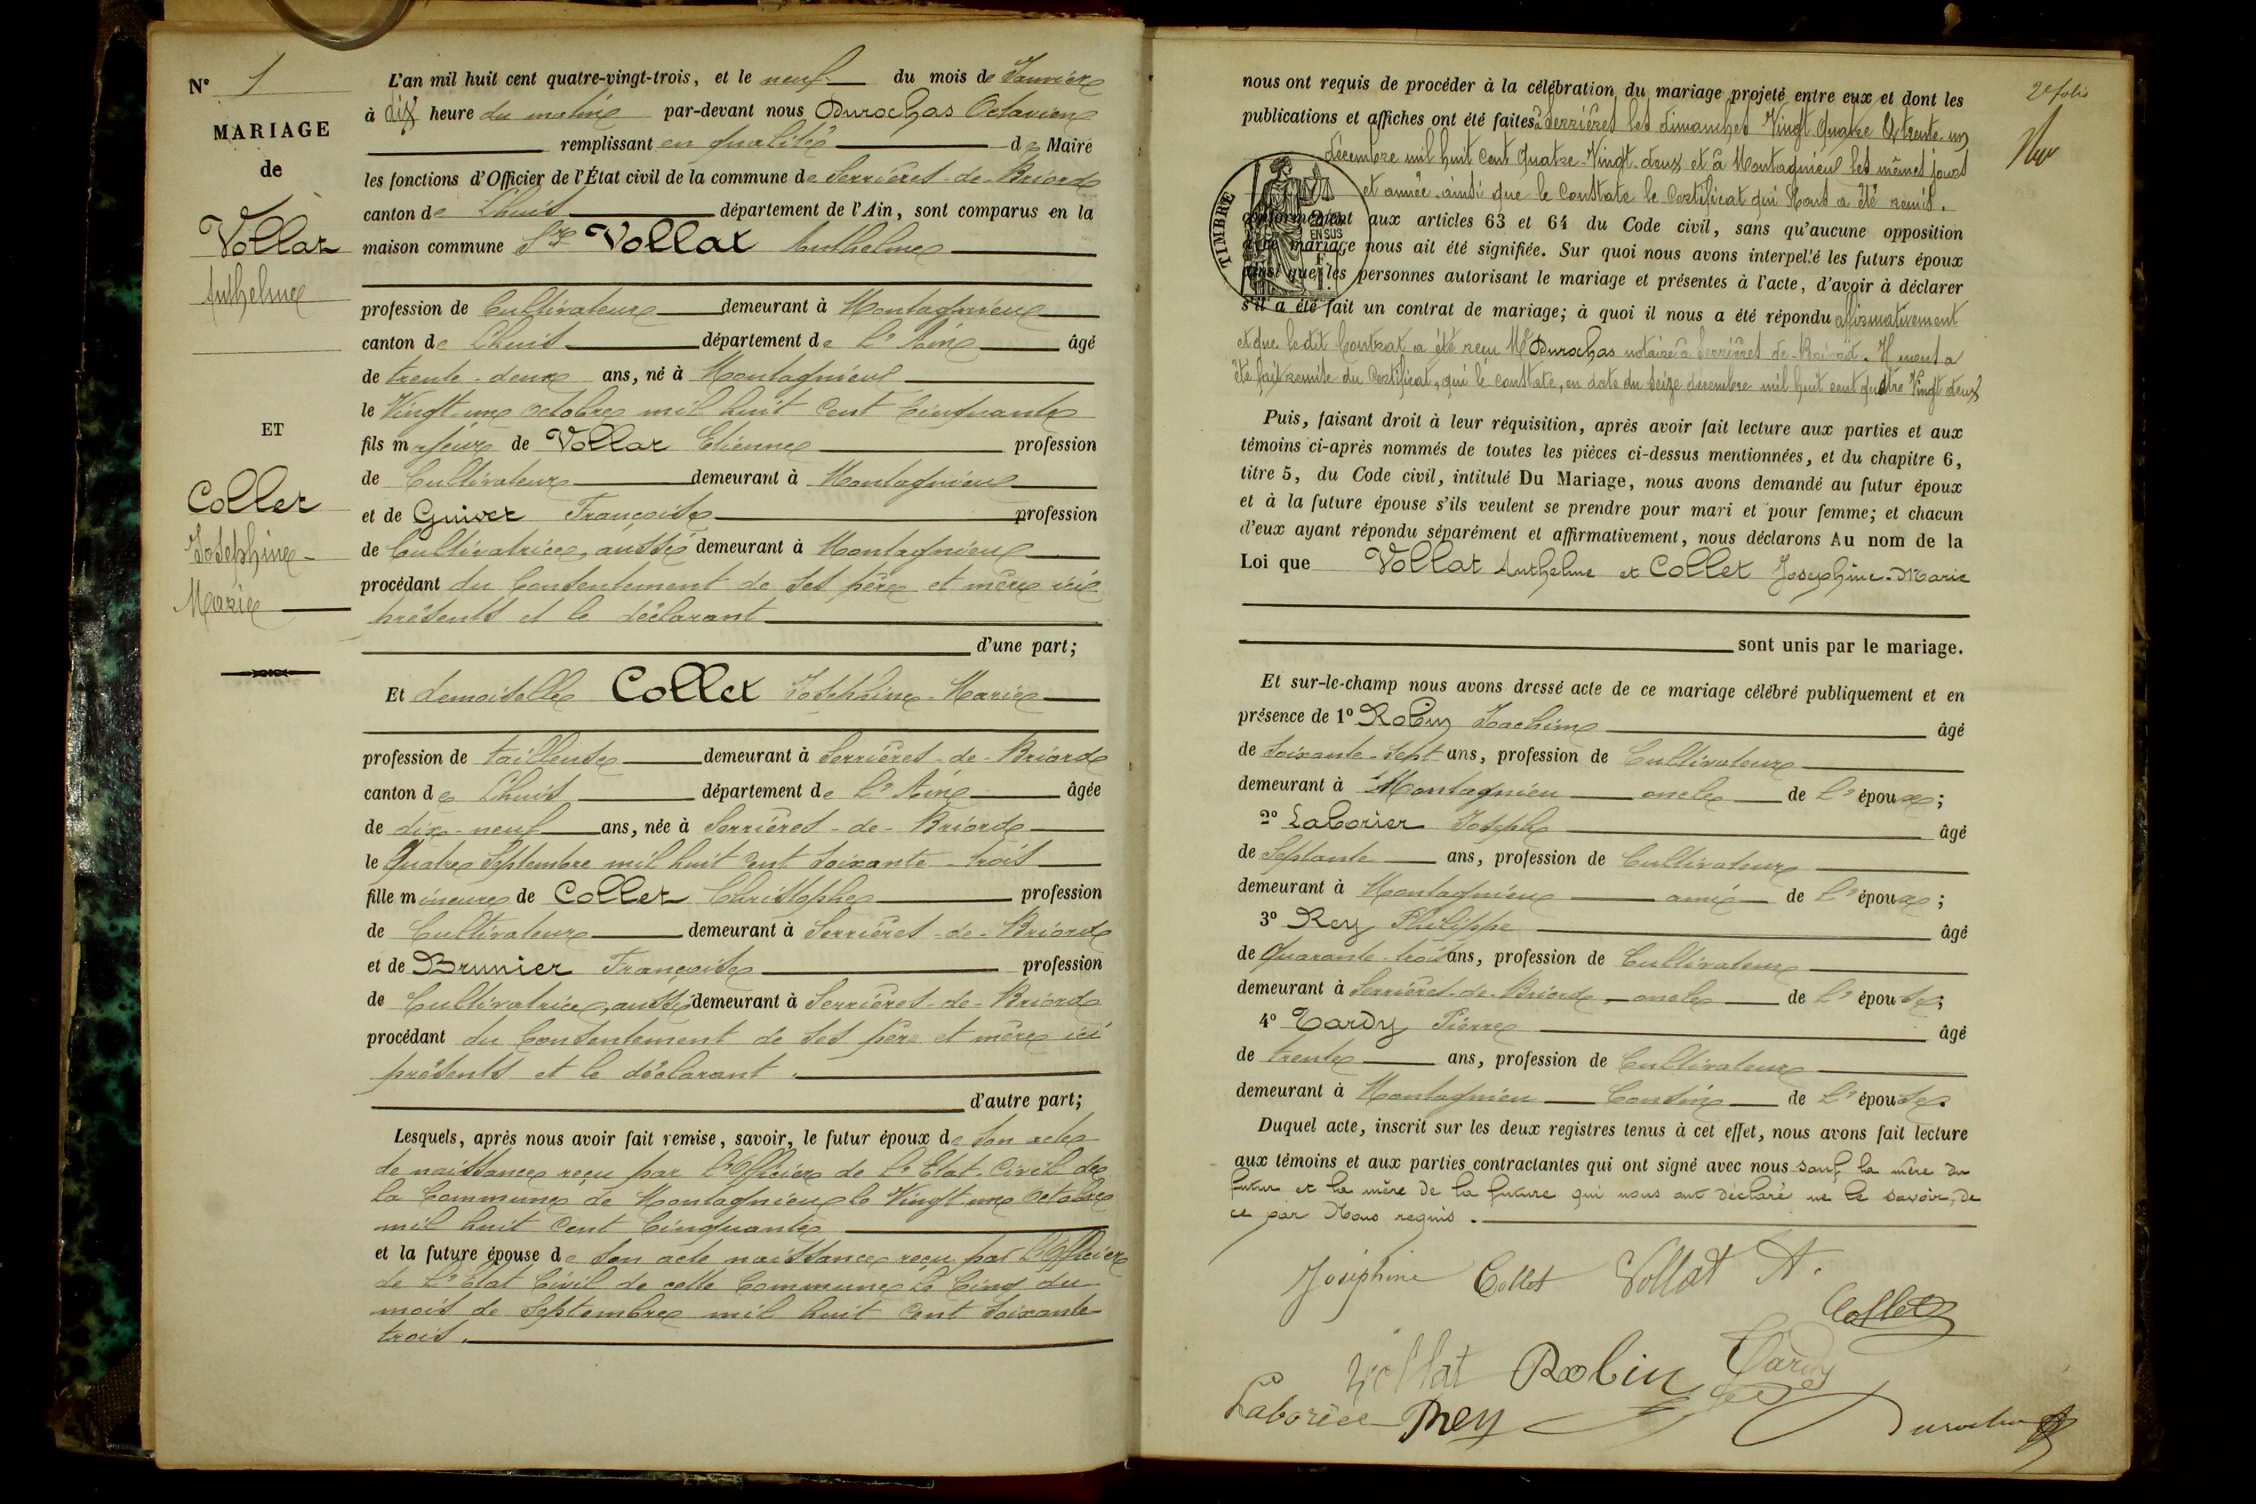 N° 1
MARIAGE
de
Vollat
Anthelme
ET
Collet
Joséphine
Marie
L'an mil huit cent quatre-vingt-trois, et le neuf du mois de Janvier
à dix heure du matin par-devant nous Durochas Octavien
remplissant en qualité de Maire
les fonctions d'Officier de l'État civil de la commune de Serrières-de-Briord
canton de Lhuis département de l'Ain, sont comparus en la
maison commune Sr Vollat Anthelme
profession de Cultivateur demeurant à Montagnieu
canton de Lhuis département de L'Ain âgé
de trente-deux ans, né à Montagnieu
le Vingt-un octobre mil huit Cent Cinquante
fils majeur de Vollat Etienne profession
de Cultivateur demeurant à Montagnieu
et de Guivet Françoise profession
de Cultivatrice, aussi demeurant à Montagnieu
procédant du Consentement de ses père et mère ici
présents et le déclarant
d'une part;
Et demoiselle Collet Joséphine-Marie
profession de tailleuse demeurant à Serrières-de-Briord
canton de Lhuis département de L'Ain âgée
de dix-neuf ans, née à Serrières-de-Briord
le Quatre Septembre mil huit Cent soixante-trois
fille mineure de Collet Christophe profession
de Cultivateur demeurant à Serrières-de-Briord
et de Brunier Françoise profession
de Cultivatrice, aussi demeurant à Serrières-de-Briord
procédant du Consentement de ses père et mère ici
présents et le déclarant.
d'autre part;
Lesquels, après nous avoir fait remise, savoir, le futur époux de son acte
de naissance reçu par L'Officier de L'Etat-Civil de
la Commune de Montagnieu le Vingt-un Octobre
mil huit Cent Cinquante
et la future épouse de son acte naissance reçu par L'Officier
de L'Etat Civil de cette Commune Le Cinq du
mois de Septembre mil huit Cent soixante
trois.
2e folio
nous ont requis de procéder à la célébration du mariage projeté entre eux et dont les
publications et affiches ont été faites à Serrières les dimanches Vingt Quatre & trente-un
décembre mil huit cent quatre-Vingt-deux et à Montagnieu les mêmes jours
et année ainsi que le Constate le Certificat qui Nous a été remis.
TIMBRE
conformément aux articles 63 et 64 du Code civil, sans qu'aucune opposition
audit mariage nous ait été signifiée. Sur quoi nous avons interpellé les futurs époux
ainsi que les personnes autorisant le mariage et présentes à l'acte, d'avoir à déclarer
s'il a été fait un contrat de mariage; à quoi il nous a été répondu affirmativement
et que le dit Contrat a été reçu Me Durochas notaire à Serrières de-Briord. Il nous a
été fait remise du Certificat, qui le constate, en date du seize décembre mil huit cent quatre Vingt deux
Puis, faisant droit à leur réquisition, après avoir fait lecture aux parties et aux
témoins ci-après nommés de toutes les pièces ci-dessus mentionnées, et du chapitre 6,
titre 5, du Code civil, intitulé Du Mariage, nous avons demandé au futur époux
et à la future épouse s'ils veulent se prendre pour mari et pour femme; et chacun
d'eux ayant répondu séparément et affirmativement, nous déclarons Au nom de la
Loi que Vollat Anthelme et Collet Joséphine-Marie
sont unis par le mariage.
Et sur-le-champ nous avons dressé acte de ce mariage célébré publiquement et en
présence de 1° Robin Joachim âgé
de soixante-sept ans, profession de Cultivateur
demeurant à Montagnieu oncle de L'époux;
2° Laborier Joseph âgé
de Septante ans, profession de Cultivateur
demeurant à Montagnieu ami de L'époux;
3° Rey Philippe âgé
de Quarante-trois ans, profession de Cultivateur
demeurant à Serrières-de-Briord oncle de L'épouse;
4° Tardy Pierre âgé
de trente ans, profession de Cultivateur
demeurant à Montagnieu Cousin de L'épouse.
Duquel acte, inscrit sur les deux registres tenus à cet effet, nous avons fait lecture
aux témoins et aux parties contractantes qui ont signé avec nous sauf la mère du
futur et la mère de la future qui nous ont déclaré ne le savoir, de
ce par Nous requis.
Joséphine Collet Vollat A.
Collet
Vollat Robin Tardy
Laborier Rey Durochas